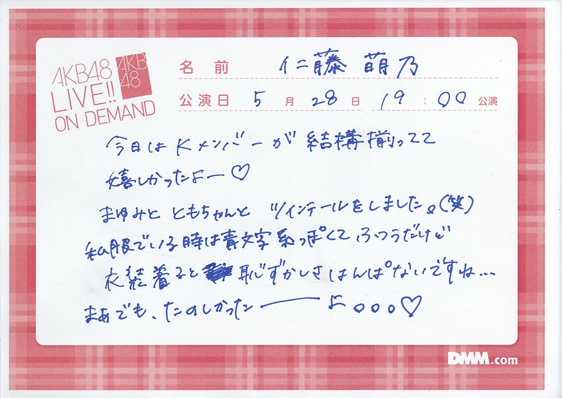 AKB48
LIVE!!
ON DEMAND
AKB
48
名前 仁藤萌乃
公演日 5月28日 19:00公演
今日はKメンバーが結構揃ってて
嬉しかったよー♡
まゆみとともちゃんとツインテールをしました。(笑)
私服でいる時は青文字系っぽくてふつうだけど
衣装着ると恥ずかしさはんぱないですね…
まあでも、たのしかった――よ。。。♡
DMM.com